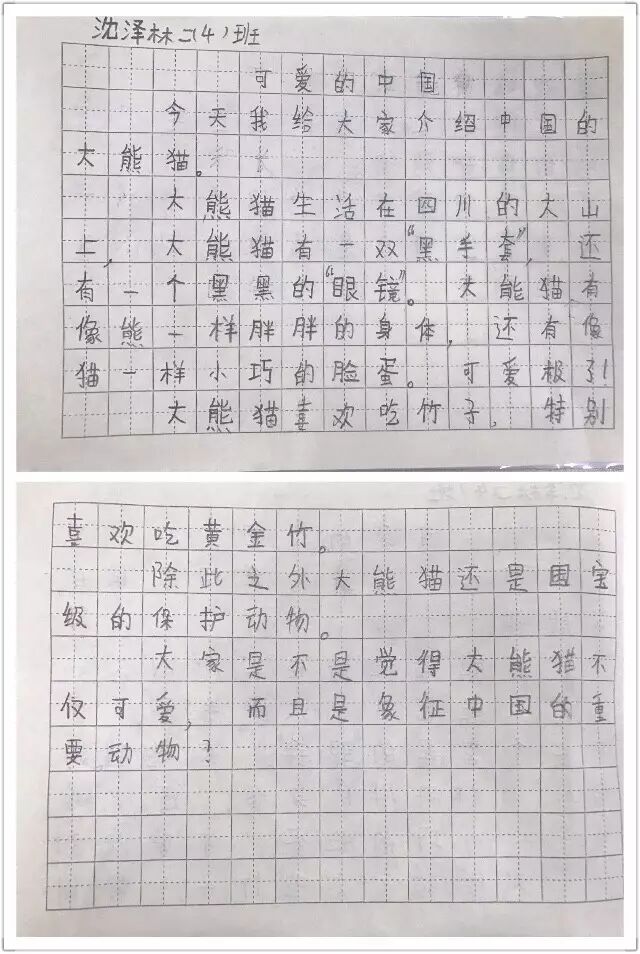 沈泽林二(4)班
可爱的中国
今天我给大家介绍中国的
大熊猫。
大熊猫生活在四川的大山
上，大熊猫有一双“黑手套”，还
有一个黑黑的“眼镜”。大能猫有
像熊一样胖胖的身体，还有像
猫一样小巧的脸蛋。可爱极了!
大熊猫喜欢吃竹子，特别
喜欢吃黄金竹。
除此之外大熊猫还是国宝
级的保护动物。
大家是不是觉得大熊猫不
仅可爱，而且是象征中国的重
要动物?